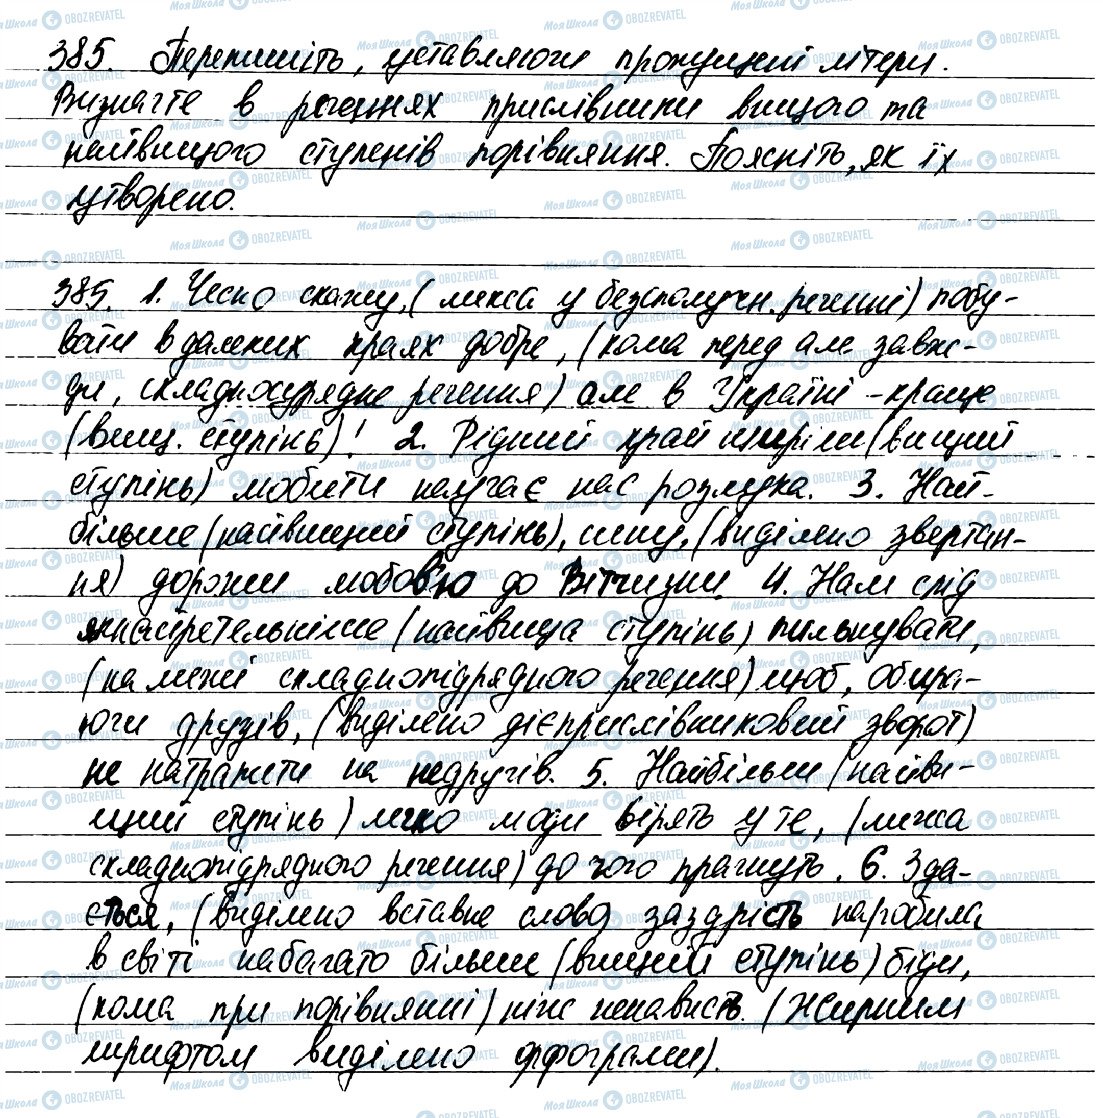 385. Перепишіть, уставляючи пропущені літери.
Визначте в реченнях прислівники вищого та
найвищого ступенів порівняння. Поясніть, як їх
утворено.
385. 1. Чесно скажу, (межа у безсполучн. реченні) побу-
вати в далеких краях добре, (кома перед але завж-
ди, складносурядне речення) але в Україні - краще
(вищ. ступінь)! 2. Рідний край щиріш (вищий
ступінь) любити научає нас розлука. 3. Най-
більше (найвищий ступінь), сину, (виділено звертан-
ня) дорожи любов'ю до Вітчизни. 4. Нам слід
якнайретельніше (найвища ступінь) пильнувати,
(на межі складнопідрядного речення) щоб, обира-
ючи друзів, (виділено дієприслівниковий зворот)
не натрапити на недругів. 5. Найбільш (найви-
щий ступінь) легко люди вірять у те, (межа
складнопідрядного речення) до чого прагнуть. 6. Зда-
ється, (виділено вставне слово) заздрість наробила
в світі набагато більш (вищий ступінь) біди,
(кома при порівнянні) ніж ненависть. (Жирним
шрифтом виділено орфограми).